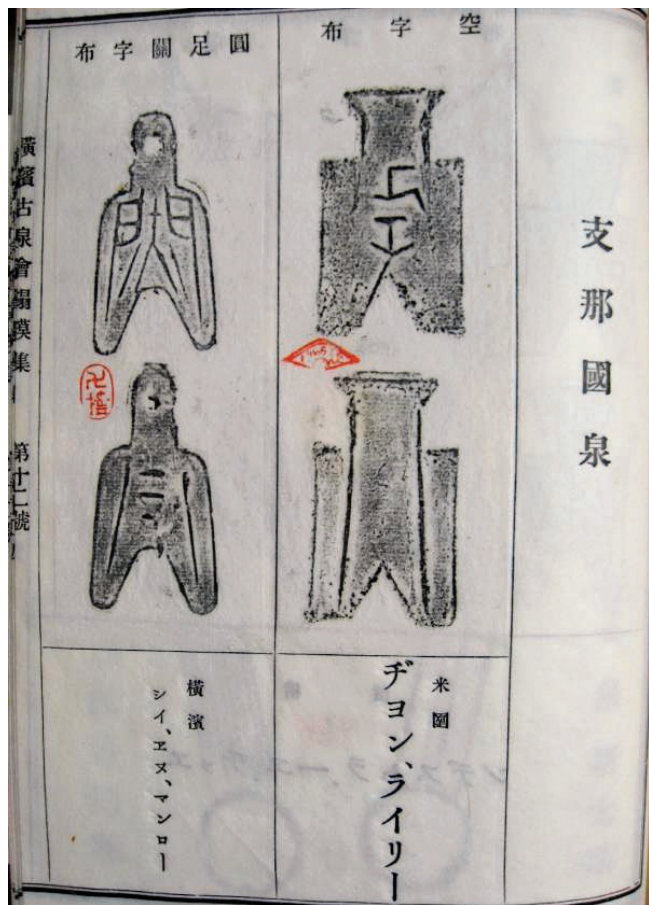 支那國泉
空字布
米國
ヂヨン、ライリー
圓足關字布
橫濱
シイ、ヱヌ、マンロー
橫濱古泉會搨摸集 第十二號